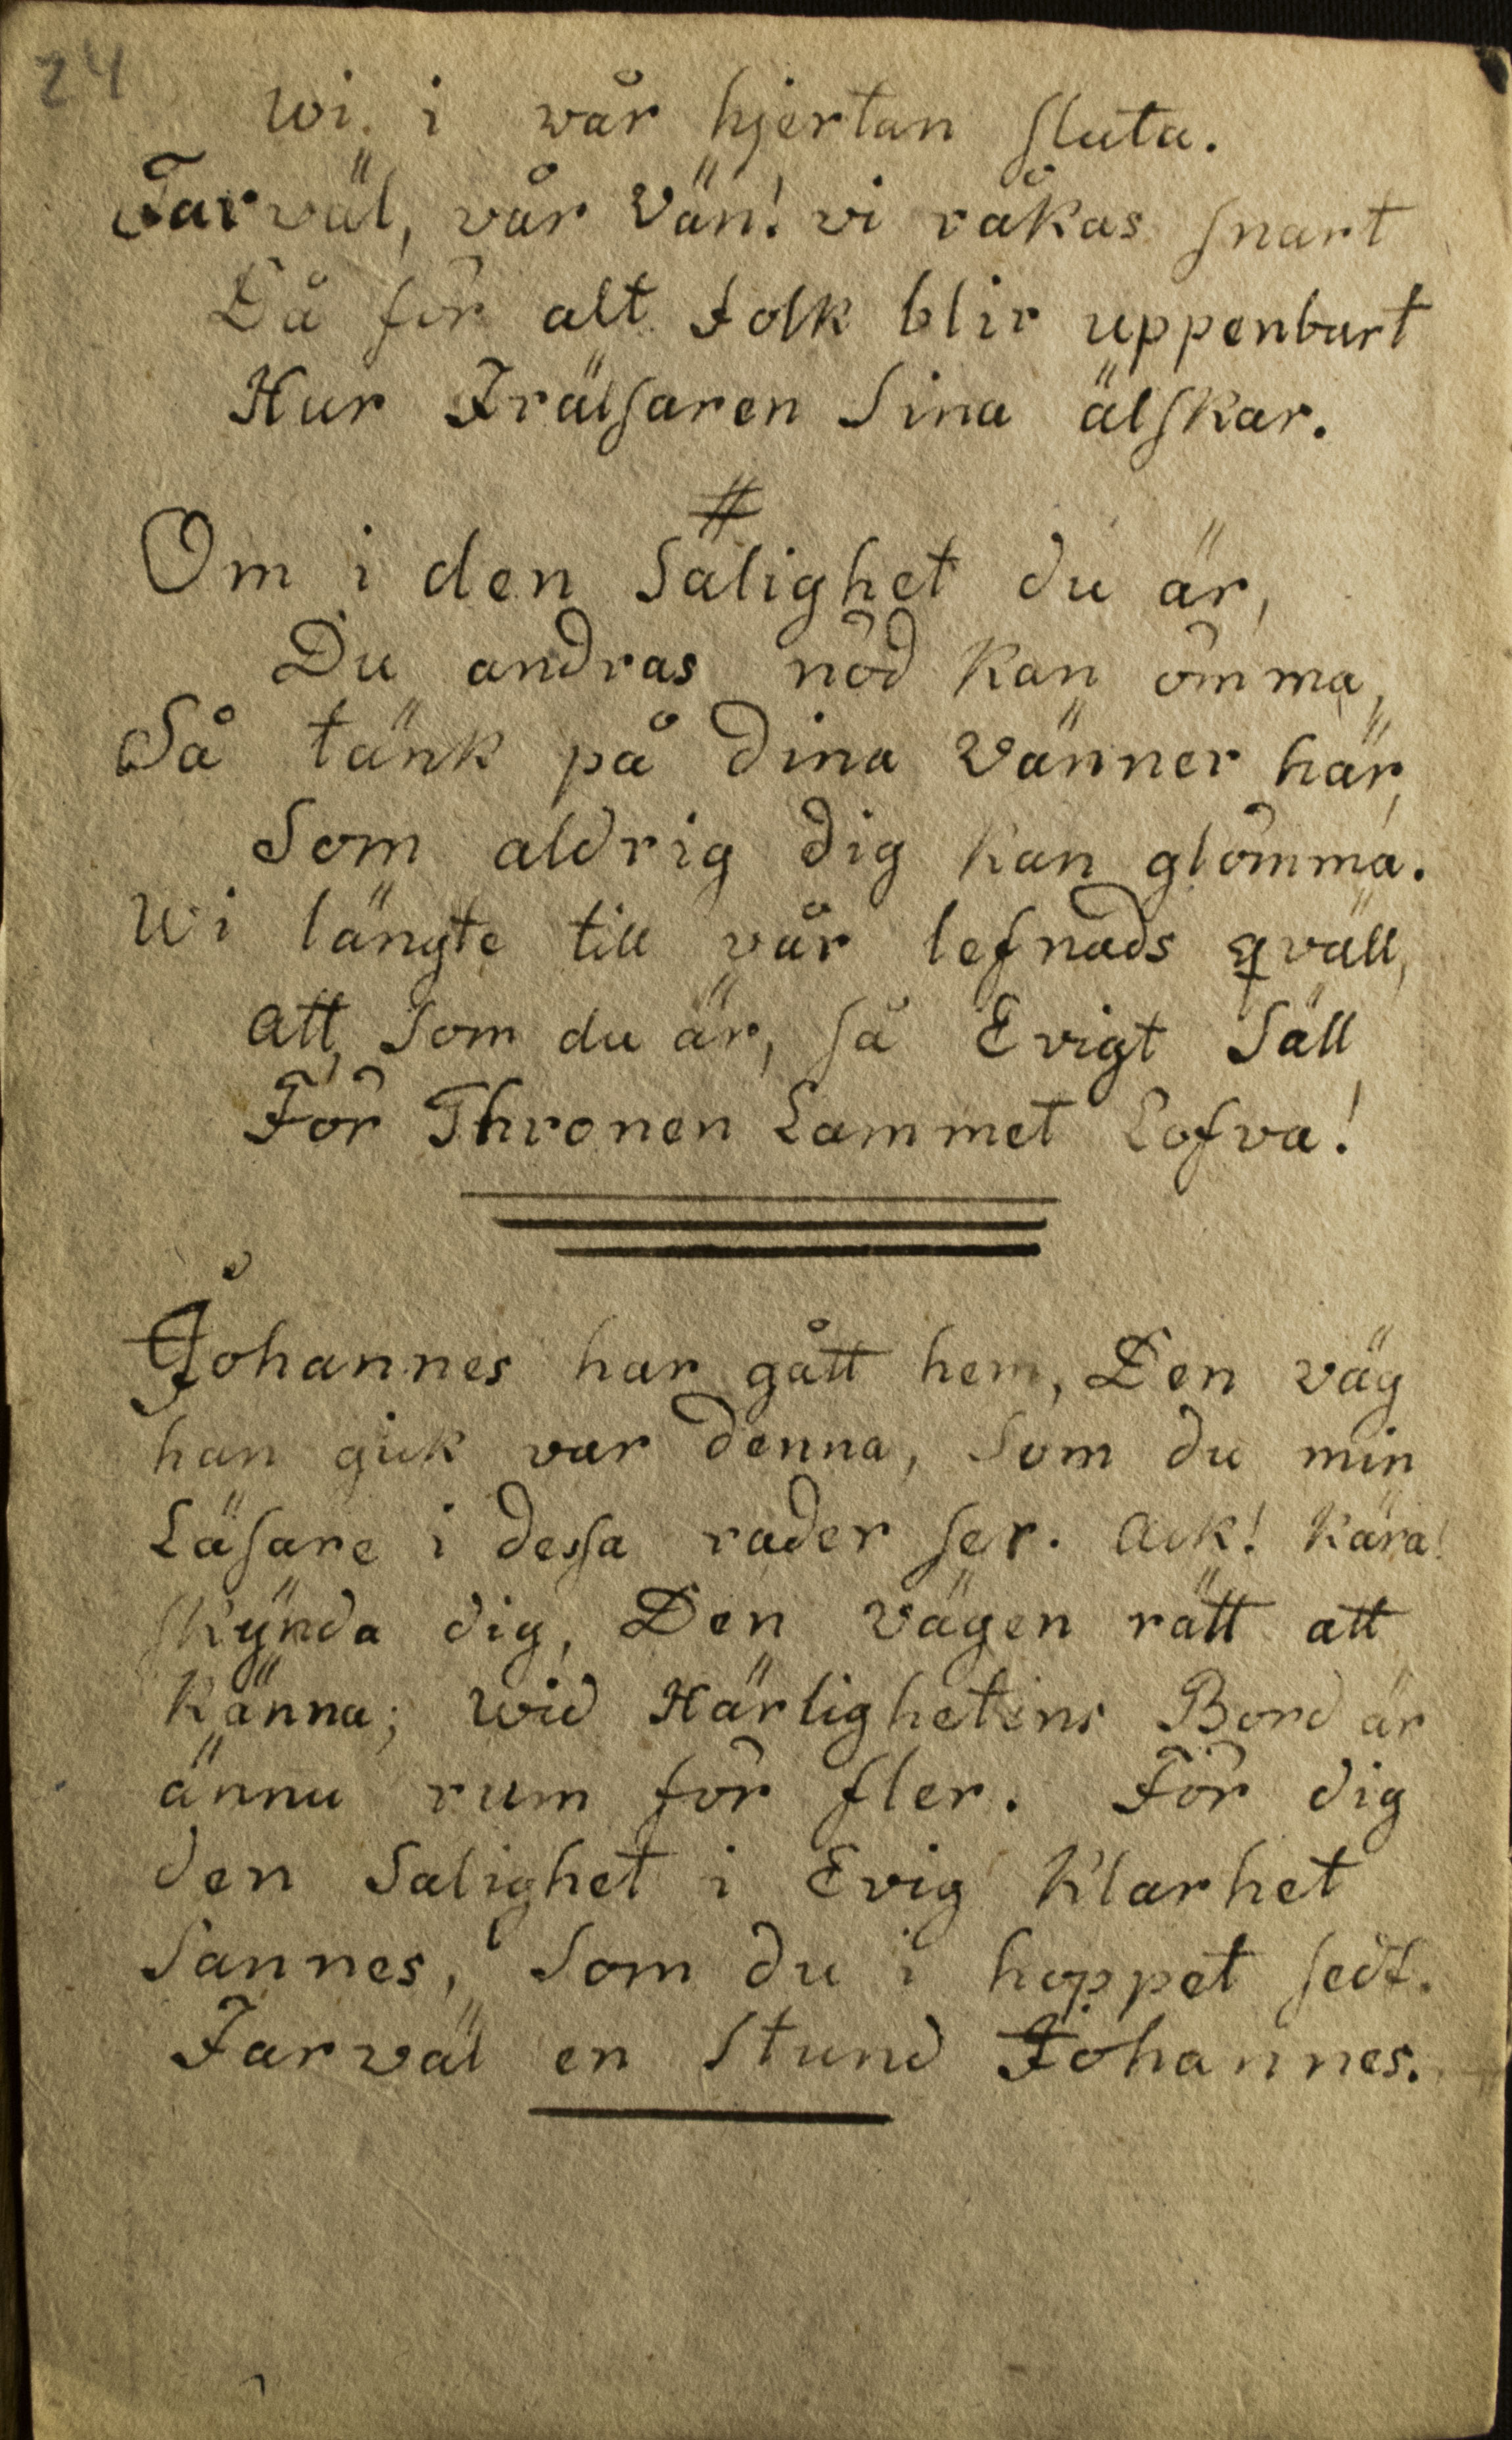 24
Wi i wår hjertan sluta.
Farväl, vår Vän! vi råkas snart
Då för alt Folk blir uppenbart
Hur Frälsaren Sina älskar.
#
Om i den Salighet du är,
Du andras nöd kan ömma,
Så tänk på dina Vänner här,
Som aldrig dig kan glömma.
Wi längte till vår lefnads qväll,
Att, Som du är, så Evigt Säll
För Thronen Lammet Lofva!
Johannes har gått hem, Den väg
han gick var denna, Som du min
Läsare i dessa rader ser. Ack! Kära!
skÿnda dig, Den vägen rätt att
Känna; Wid Härlighetens Bord är
ännu rum för fler. För dig
den Salighet i Evig Klarhet
Sannes, Som du i hoppet sedt.
Farväl en Stund Johannes.